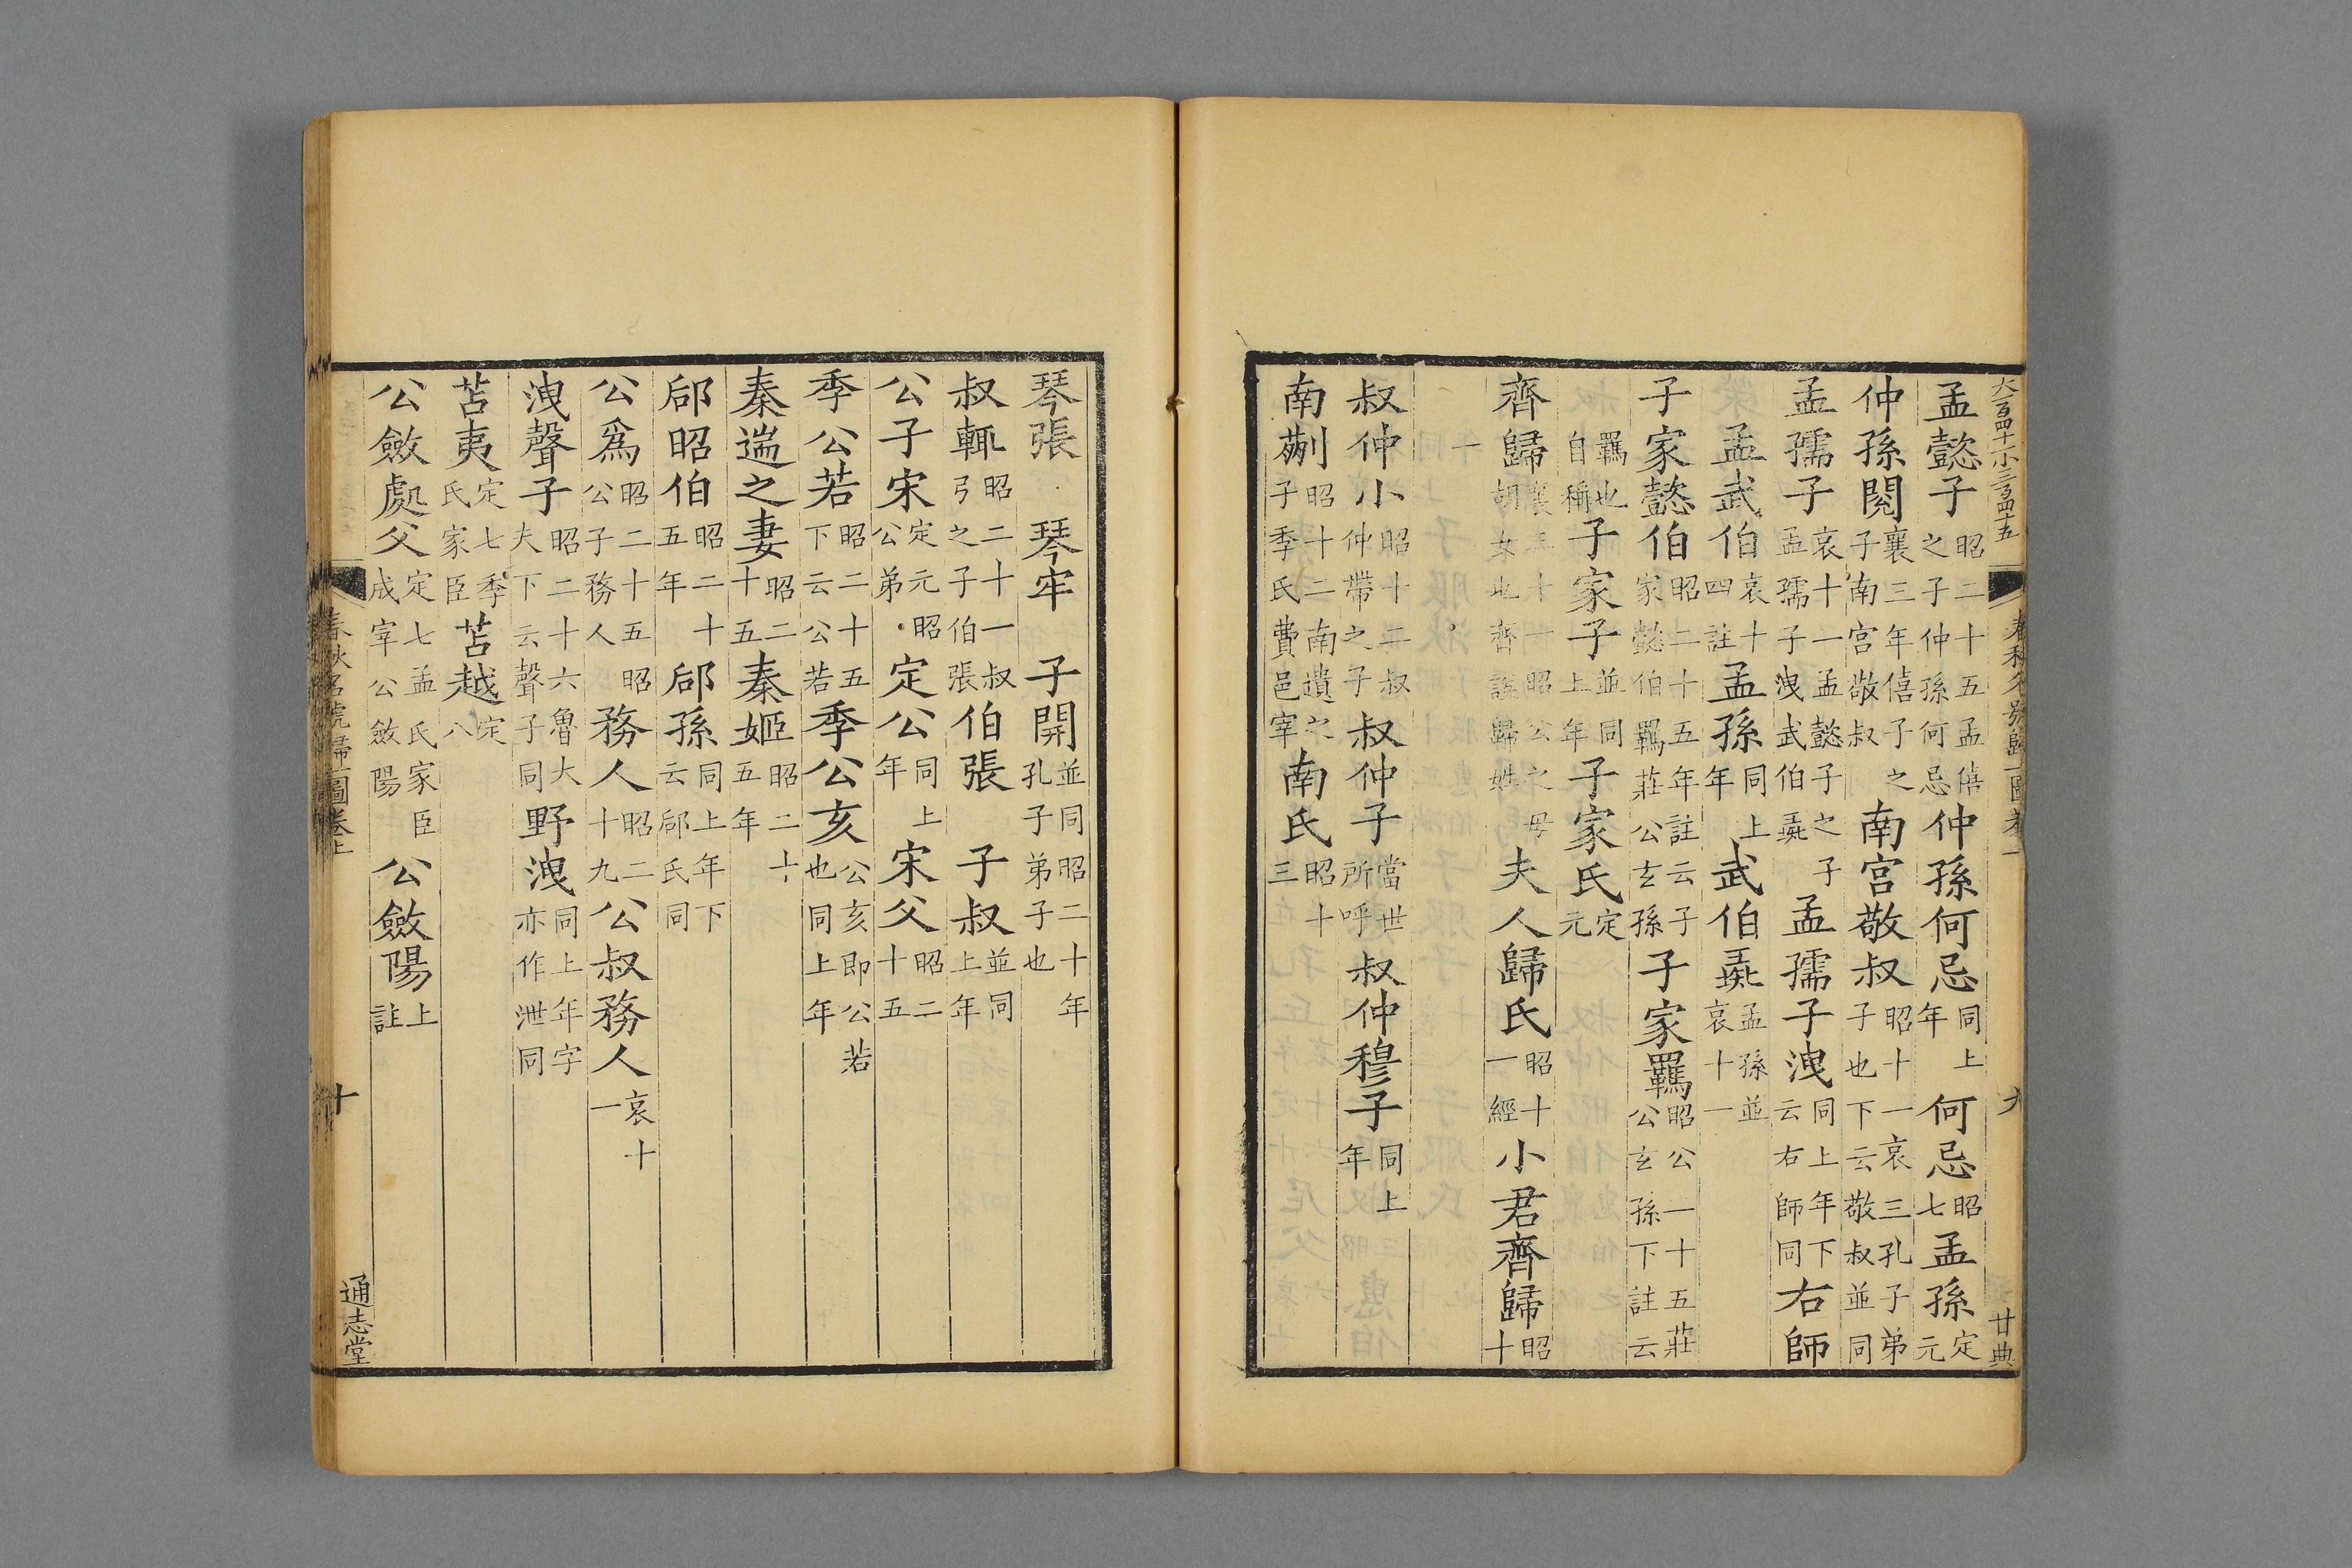 大一百四十一小三百四十五
孟懿子昭二十五孟僖之子仲孫何忌仲孫何忌同上年何忌昭七孟孫定元
仲孫閱襄三年僖子之子南宮敬叔南宮敬叔昭十一哀三孔子弟子也下云敬叔並同
孟孺子哀十一孟懿子之子孟孺子洩武伯彘孟孺子洩同上年下云右師同右師
孟武伯哀十四註孟孫同上年武伯彘孟孫並哀十一
子家懿伯昭二十五年註云子家懿伯羈莊公玄孫子家羈昭公二十五莊公玄孫下註云
羈也自稱子家子並同上年子家氏定元
齊歸襄三十一昭公之母胡女也齊謚歸姓夫人歸氏昭十一經小君齊歸昭十
一
叔仲小昭十二叔仲帶之子叔仲子當世所呼叔仲穆子同上年
南蒯昭十二南遺之子季氏費邑宰南氏昭十三
春秋名號歸一圖卷上
九
廿典
琴張 琴牢 子開並同昭二十年孔子弟子也
叔輒昭二十一叔弓之子伯張伯張 子叔並同上年
公子宋定元昭公弟定公同上年宋父昭二十五
季公若昭二十五下云公若季公亥公亥即公若也同上年
秦遄之妻昭二十五秦姬昭二十五年
郈昭伯昭二十五年郈孫同上年下云郈氏同
公為昭二十五昭公子務人務人昭二十九公叔務人哀十一
洩聲子昭二十六魯大夫下云聲子同野洩同上年字亦作泄同
苫夷定七季氏家臣苫越定八
公斂處父定七孟氏家臣成宰公斂陽公斂陽上註
春秋名號歸一圖卷上
十
通志堂